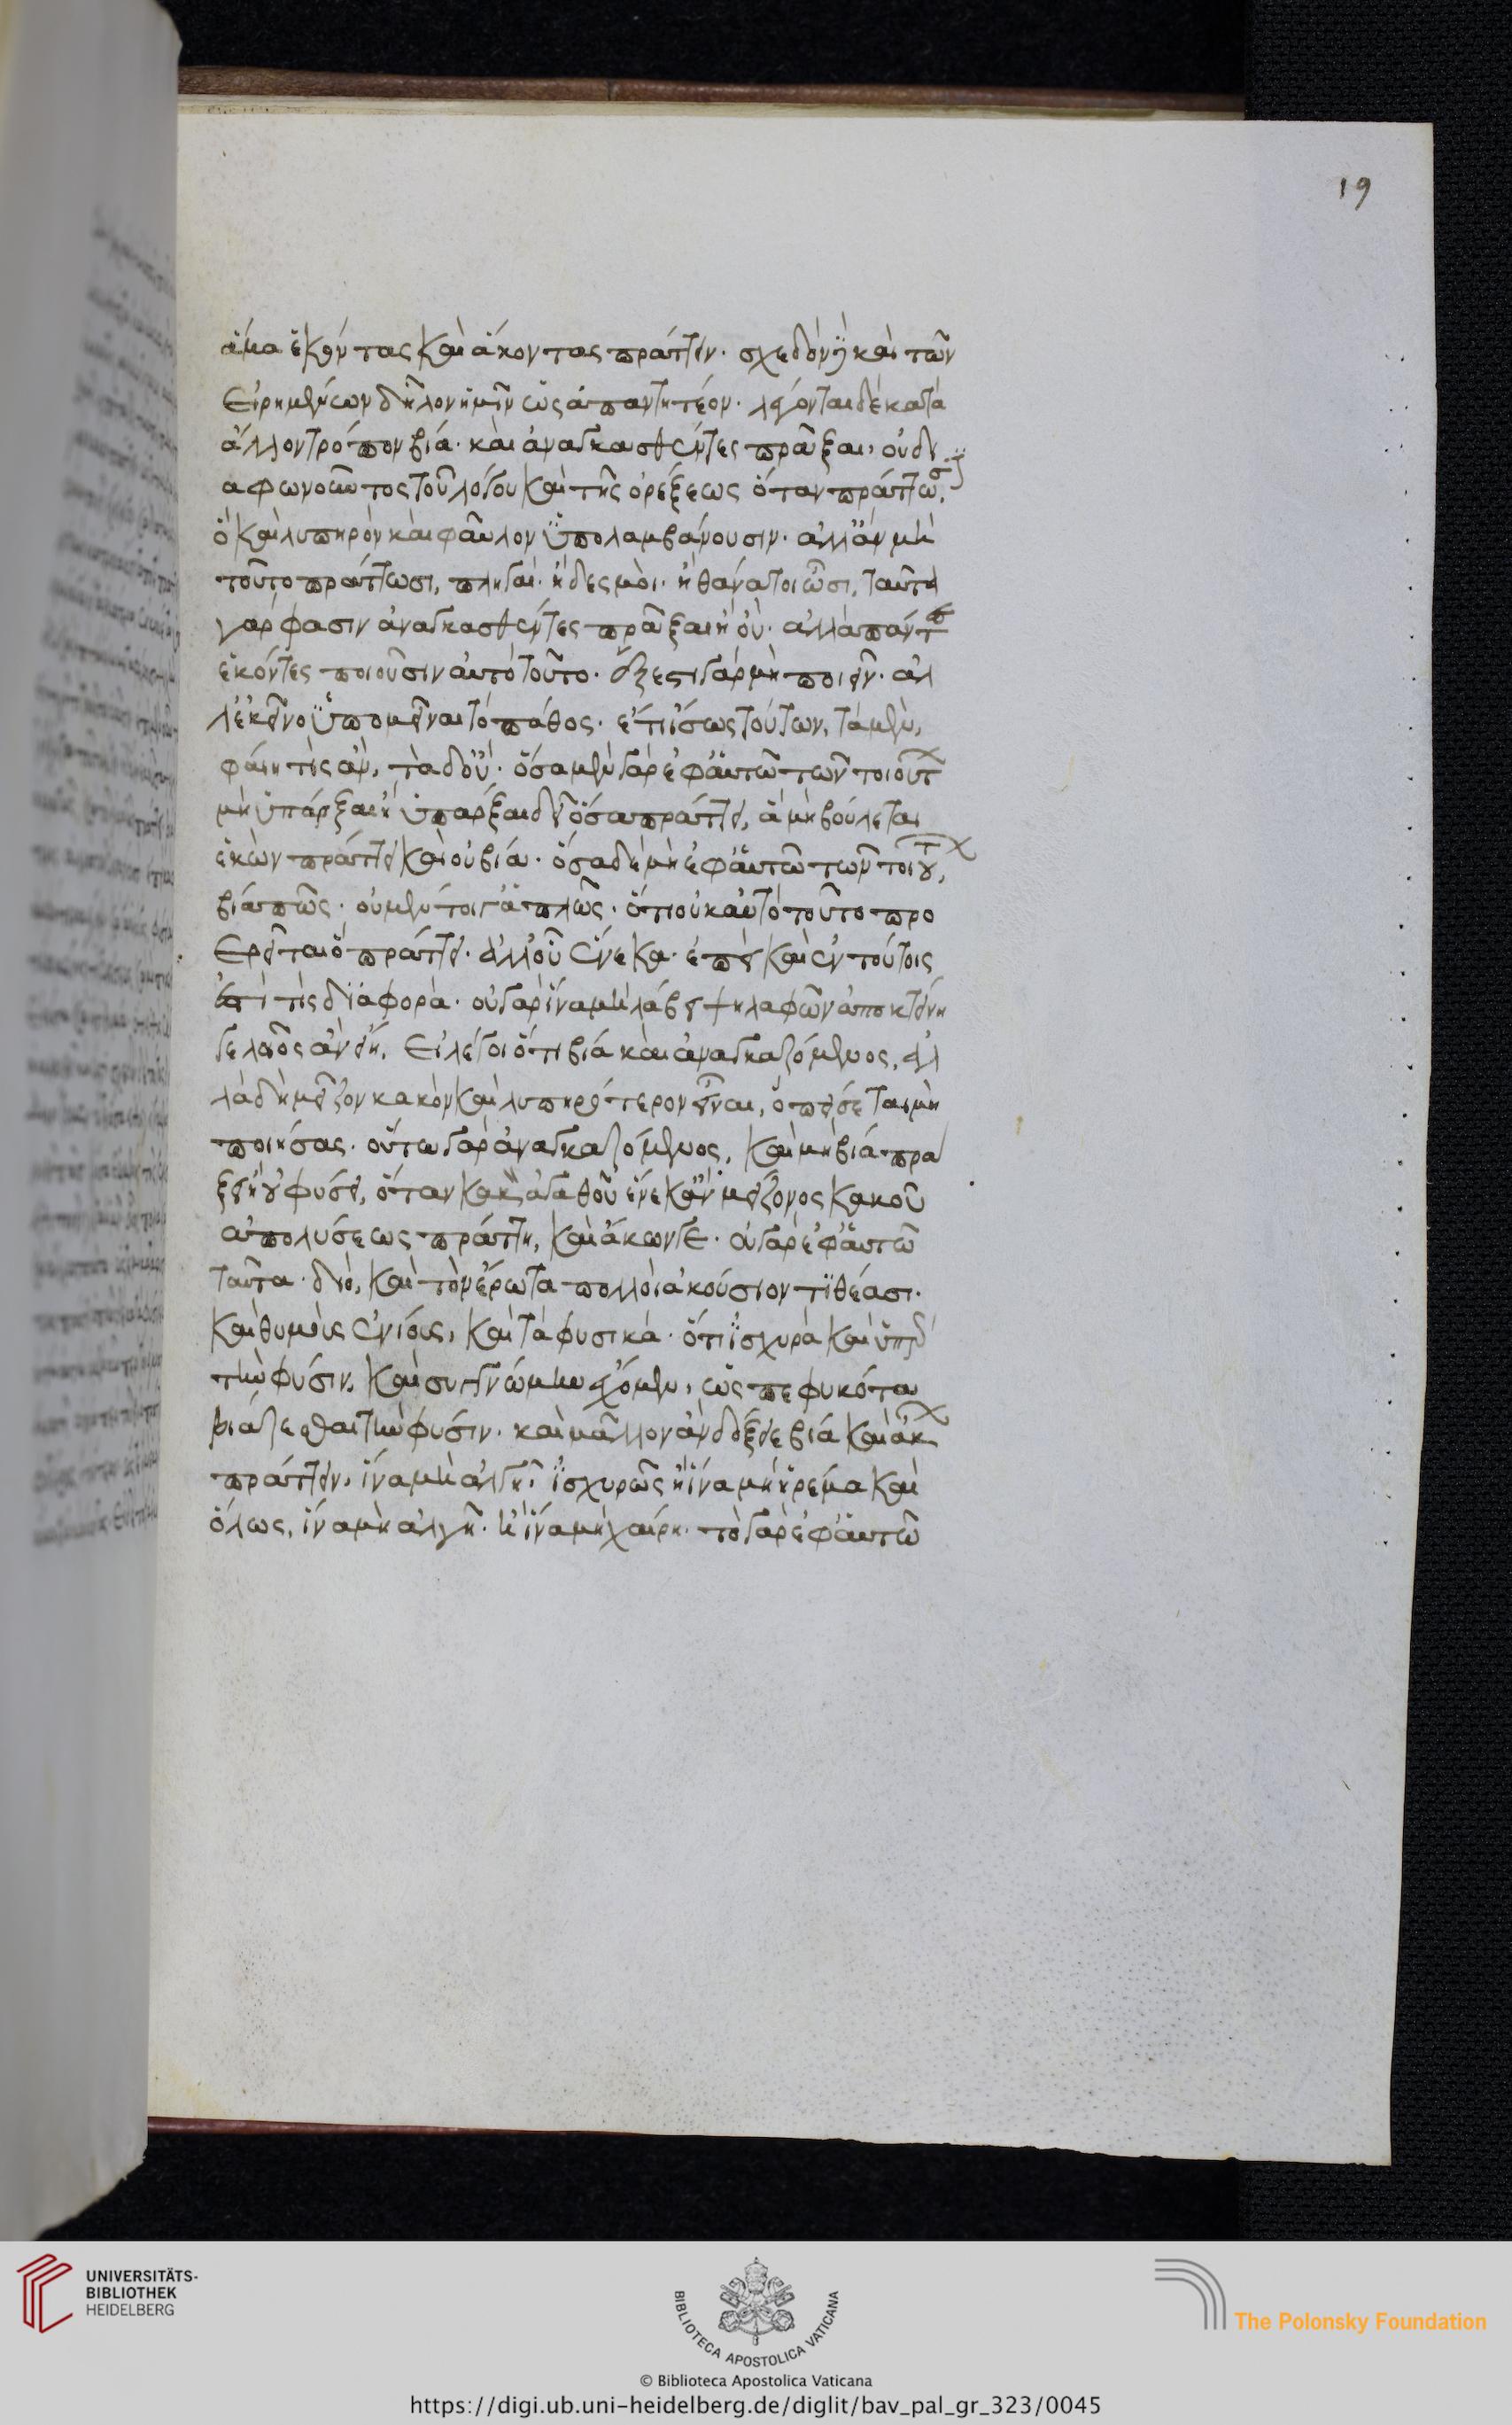 19
ἅμα ἑκόντας καὶ ἄκοντας πράττειν. σχεδὸν δὴ καὶ τῶν
εἰρημένων δῆλον ἡμῖν ὡς ἀπαντητέον. λέγονται δὲ κατὰ
ἄλλον τρόπον βία. καὶ ἀναγκασθέντες πρᾶξαι, οὐ δι
αφωνοῦντος τοῦ λόγου καὶ τῆς ὀρέξεως ὅταν πράττωσιν,
ὃ καὶ λυπηρὸν καὶ φαῦλον ὑπολαμβάνουσιν. ἀλλ' ἂν μὴ
τοῦτο πράττωσι, πληγαὶ. ἢ δεσμοὶ. ἢ θάνατοι ὦσι, ταῦτα
γάρ φασιν ἀναγκασθέντες πρᾶξαι ἢ οὔ. ἀλλὰ πάντες
ἑκόντες ποιοῦσιν αὐτὸ τοῦτο. ἔξεστι γὰρ μὴ ποιεῖν. ἀλ
λ' ἐκεῖνο ὑπομεῖναι τὸ πάθος. ἔτι ἴσως τούτων, τὰ μὲν,
φαίη τις ἂν, τὰ δ' οὔ. ὅσα μὲν γὰρ ἐφ' αὑτῶ τῶν τοιούτων
μὴ ὑπάρξαι ἢ ὑπάρξαι δεῖ ὅσα πράττει, ἃ μὴ βούλεται
ἑκὼν πράττει καὶ οὐ βία. ὅσα δὲ μὴ ἐφ' αὑτῶ τῶν τοιούτων,
βία πῶς. οὐ μέντοι γ' ἁπλῶς. ὅτι οὐκ αὐτὸ τοῦτο προ
ερεῖται ὃ πράττει. ἀλλ' οὗ ἕνεκα. ἐπεὶ καὶ ἐν τούτοις
ἐστί τις διαφορά. οὐ γὰρ ἵνα μὴ λάβη ψηλαφῶν ἀποκτείνη
γελοῖος ἂν εἴη. εἰ λέγοι ὅτι βία καὶ ἀναγκαζόμενος, ἀλ
λὰ δὴ μεῖζον κακὸν καὶ λυπηρότερον εἶναι, ὃ πείσεται μὴ
ποιήσας. οὕτω γὰρ ἀναγκαζόμενος, καὶ μὴ βία πρά
ξει ἢ οὐ φύσει, ὅταν κακὸν ἀγαθοῦ ἕνεκα ἢ μείζονος κακοῦ
ἀπολύσεως πράττη, καὶ ἄκων γε. οὐ γὰρ ἐφ' αὑτῶ
ταῦτα. διὸ, καὶ τὸν ἔρωτα πολλοὶ ἀκούσιον τιθέασι.
καὶ θυμοὺς ἐνίους, καὶ τὰ φυσικά. ὅτι ἰσχυρὰ καὶ ὑπὲρ
τὴν φύσιν. καὶ συγγνώμην ἔχομεν, ὡς πεφυκότα
βιάζεσθαι τὴν φύσιν. καὶ μᾶλλον ἂν δόξειε βία καὶ ἄκων
πράττειν, ἵνα μὴ ἀλγῆ ἰσχυρῶς ἢ ἵνα μὴ ἠρέμα καὶ
ὅλως, ἵνα μὴ ἀλγῆ. ἢ ἵνα μὴ χαίρη. τὸ γὰρ ἐφ' αὑτῶ
UNIVERSITÄTS-
BIBLIOTHEK
HEIDELBERG
BIBLIOTECA APOSTOLICA VATICANA
The Polonsky Foundation
© Biblioteca Apostolica Vaticana
https://digi.ub.uni-heidelberg.de/diglit/bav_pal_gr_323/0045